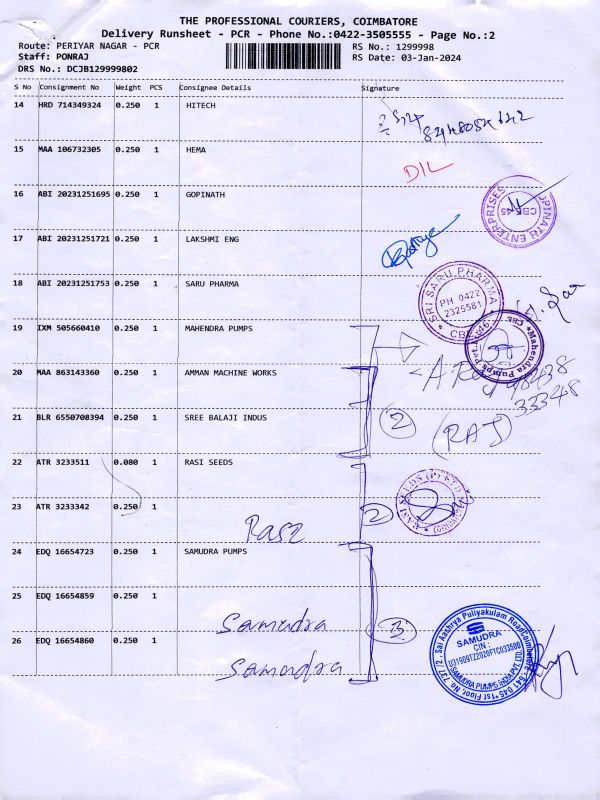 THE PROFESSIONAL COURIERS, COIMBATORE
Delivery Runsheet - PCR - Phone No.:0422-3505555 - Page No.:2
Route: PERIYAR NAGAR - PCR RS No.: 1299998
Staff: PONRAJ RS Date: 03-Jan-2024
DRS No.: DCJB129999802
S No Consignment No Weight PCS Consignee Details Signature
14 HRD 714349324 0.250 1 HITECH
15 MAA 106732305 0.250 1 HEMA
DIL
16 ABI 20231251695 0.250 1 GOPINATH
GOPINATH ENTERPRISES CBE-45
17 ABI 20231251721 0.250 1 LAKSHMI ENG
18 ABI 20231251753 0.250 1 SARU PHARMA
SRI SARU PHARMA
PH 0422
2325581
CBE
19 IXM 505660410 0.250 1 MAHENDRA PUMPS
Mahendra Pumps Pvt.
20 MAA 863143360 0.250 1 AMMAN MACHINE WORKS
33348
21 BLR 6550708394 0.250 1 SREE BALAJI INDUS
2 (RAJ)
22 ATR 3233511 0.080 1 RASI SEEDS
RASI SEEDS (P) LTD
23 ATR 3233342 0.250 1
Rasi 2
24 EDQ 16654723 0.250 1 SAMUDRA PUMPS
25 EDQ 16654859 0.250 1
Samudra 3
26 EDQ 16654860 0.250 1
Samudra
SAMUDRA
CIN :
SAMUDRA PUMPS INDIA PVT LTD
1st Floor, No. 737/2, Sai Aashrya Puliyakulam Road, Coimbatore - 641 045